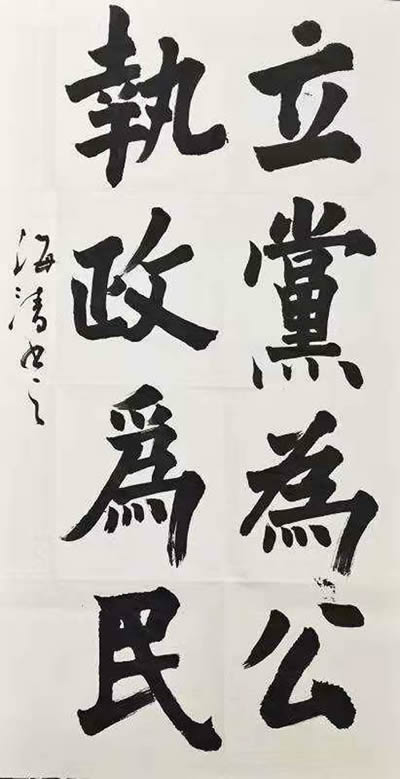 立黨為公
執政爲民
海清書之